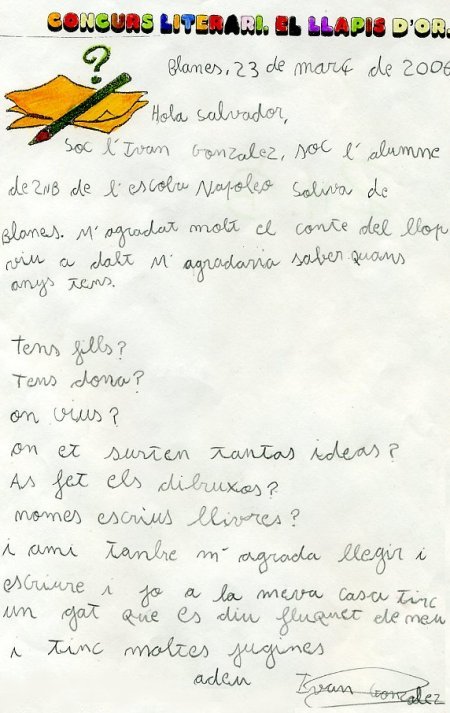 CONCURS LITERARI. EL LLAPIS D'OR.
Blanes, 23 de març de 2006
Hola Salvador,
Soc l'Ivan Gonzalez, soc l'alumne
de 2NB de l'escola Napoleo Soliva de
Blanes. M'agradat molt el conte del llop
viu a dalt M'agradaria saber quans
anys tens.
Tens fills?
Tens dona?
on vius?
on et surten tantas ideas?
As fet els dibruxos?
nomes escrius llivres?
i ami tanbe m'agrada llegir i
escriure i jo a la meva casa tinc
un gat que es diu fluquet de neu
i tinc moltes jugines
adeu Ivan Gonzalez